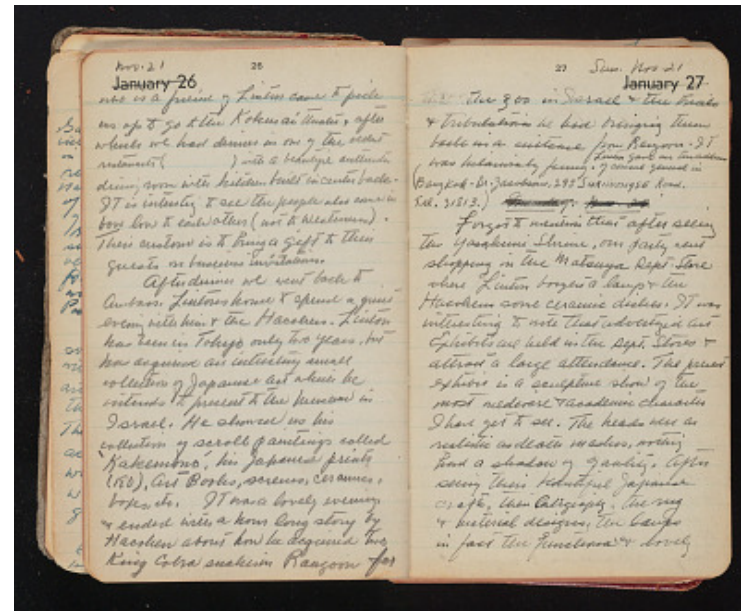 Nov. 21
26
January 26
who is a friend of Lintons came to pick
us up to go to the Kokusai Theatre, after
which we had dinner in one of the oldest
restaurants ( ) with a beautiful authentic
dining room with kitchen built in center back.
It is interesting to see the people who come in
bow low to each other (not to Westerners).
Their custom is to bring a gift to their
guests on business invitations.
After dinner we went back to
Ambass. Lintons home & spend a quiet
evening with him & the Hacohens. Linton
has been in Tokyo only two years, but
has acquired an interesting small
collection of Japanese art which he
intends to present to the Museum in
Israel. He showed us his
collection of scroll paintings called
"Kakemono", his Japanese prints
(150), Art Books, screens, ceramics,
boxes etc. It was a lovely evening
& ended with a hour long story by
Hacohen about how he acquired two
King Cobra snakes in Rangoon for
27
Sun. Nov 21
January 27
the zoo in Israel & the trials
& tribulations he had bringing them
back on a airplane from Rangoon. It
was hilariously funny. Linton gave us the address
of consul general in
(Bangkok - Dr. Jacobsohn, 292 Suriwongse Road.
Tel. 31813.)
Forgot to mention that after seeing
the Yasakuni Shrine, our party went
shopping in the Matsuya Dept. Store
where Linton bought a lamp & the
Hacohens some ceramic dishes. It was
interesting to note that advertized art
Exhibits are held in the Dept. Stores &
attract a large attendance. The present
exhibit is a sculpture show of the
most mediocre & academic character
I have yet to see. The heads were as
realistic as death masks, nothing
had a shadow of quality. After
seeing their beautiful Japanese
crafts, their Caligraphy, the rug
& material designs, the lamps
in fact the functional & lovely